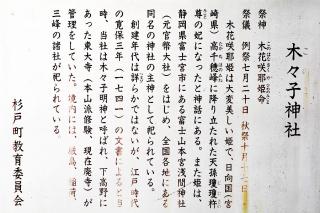 木々子神社
祭神　木花咲耶姫命
祭儀　例祭七月二十日　秋祭十月十二日
木花咲耶姫は大変美しい姫で、日向国（宮
崎県）高千穂峰に降り立たれた天孫瓊瓊杵
尊の妃になったと神話にある。また姫は、
静岡県富士宮市にある富士山本宮浅間神社
（元官幣大社）をはじめ、全国各地にある
同名の神社の主神として祀られている。
創建年代は詳らかではないが、江戸時代
の寛保三年（一七四一）の文書によると当
時、当社は木々子明神と呼ばれ、下高野に
あった東大寺（本山派修験、現在廃寺）が
管理をしていた。境内には、厳島、稲荷、
三峰の諸社が祀られている。
杉戸町教育委員会